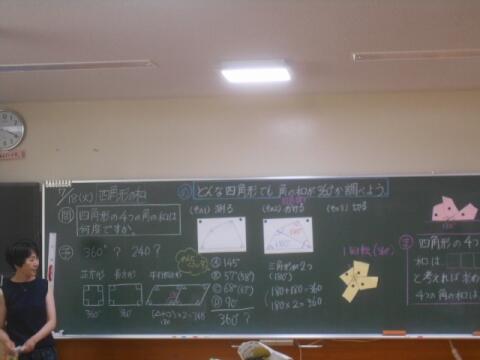 7/18(火) 四角形の和
問 四角形の4つの角の和は
何度ですか。
予 360°? 240?
正方形 長方形 平行四辺形
360° 360°
180
め どんな四角形でも 角の和が360°か調べよう
(その1) 測る
(その2) 分ける
(その3) 切る
Ⓐ 145°
Ⓑ 57°(58°)
Ⓒ 68°(67)
Ⓓ 90°
360°?
180° 180°
三角形が2つ
(180°)
180+180=360
180×2=360
1回転(360°)
180°
四角形の4つ
和は
と考えれば求め
4つの角の和は